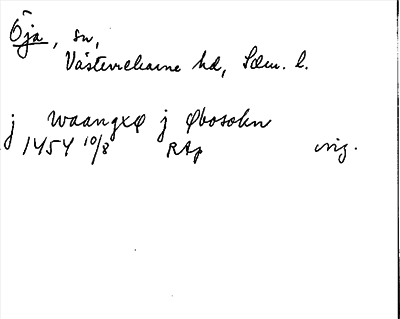 Öja, sn,
Västerrekarne hd, Söm. l.
j waangxø j øbosokn
1454 10/8 RAp orig.